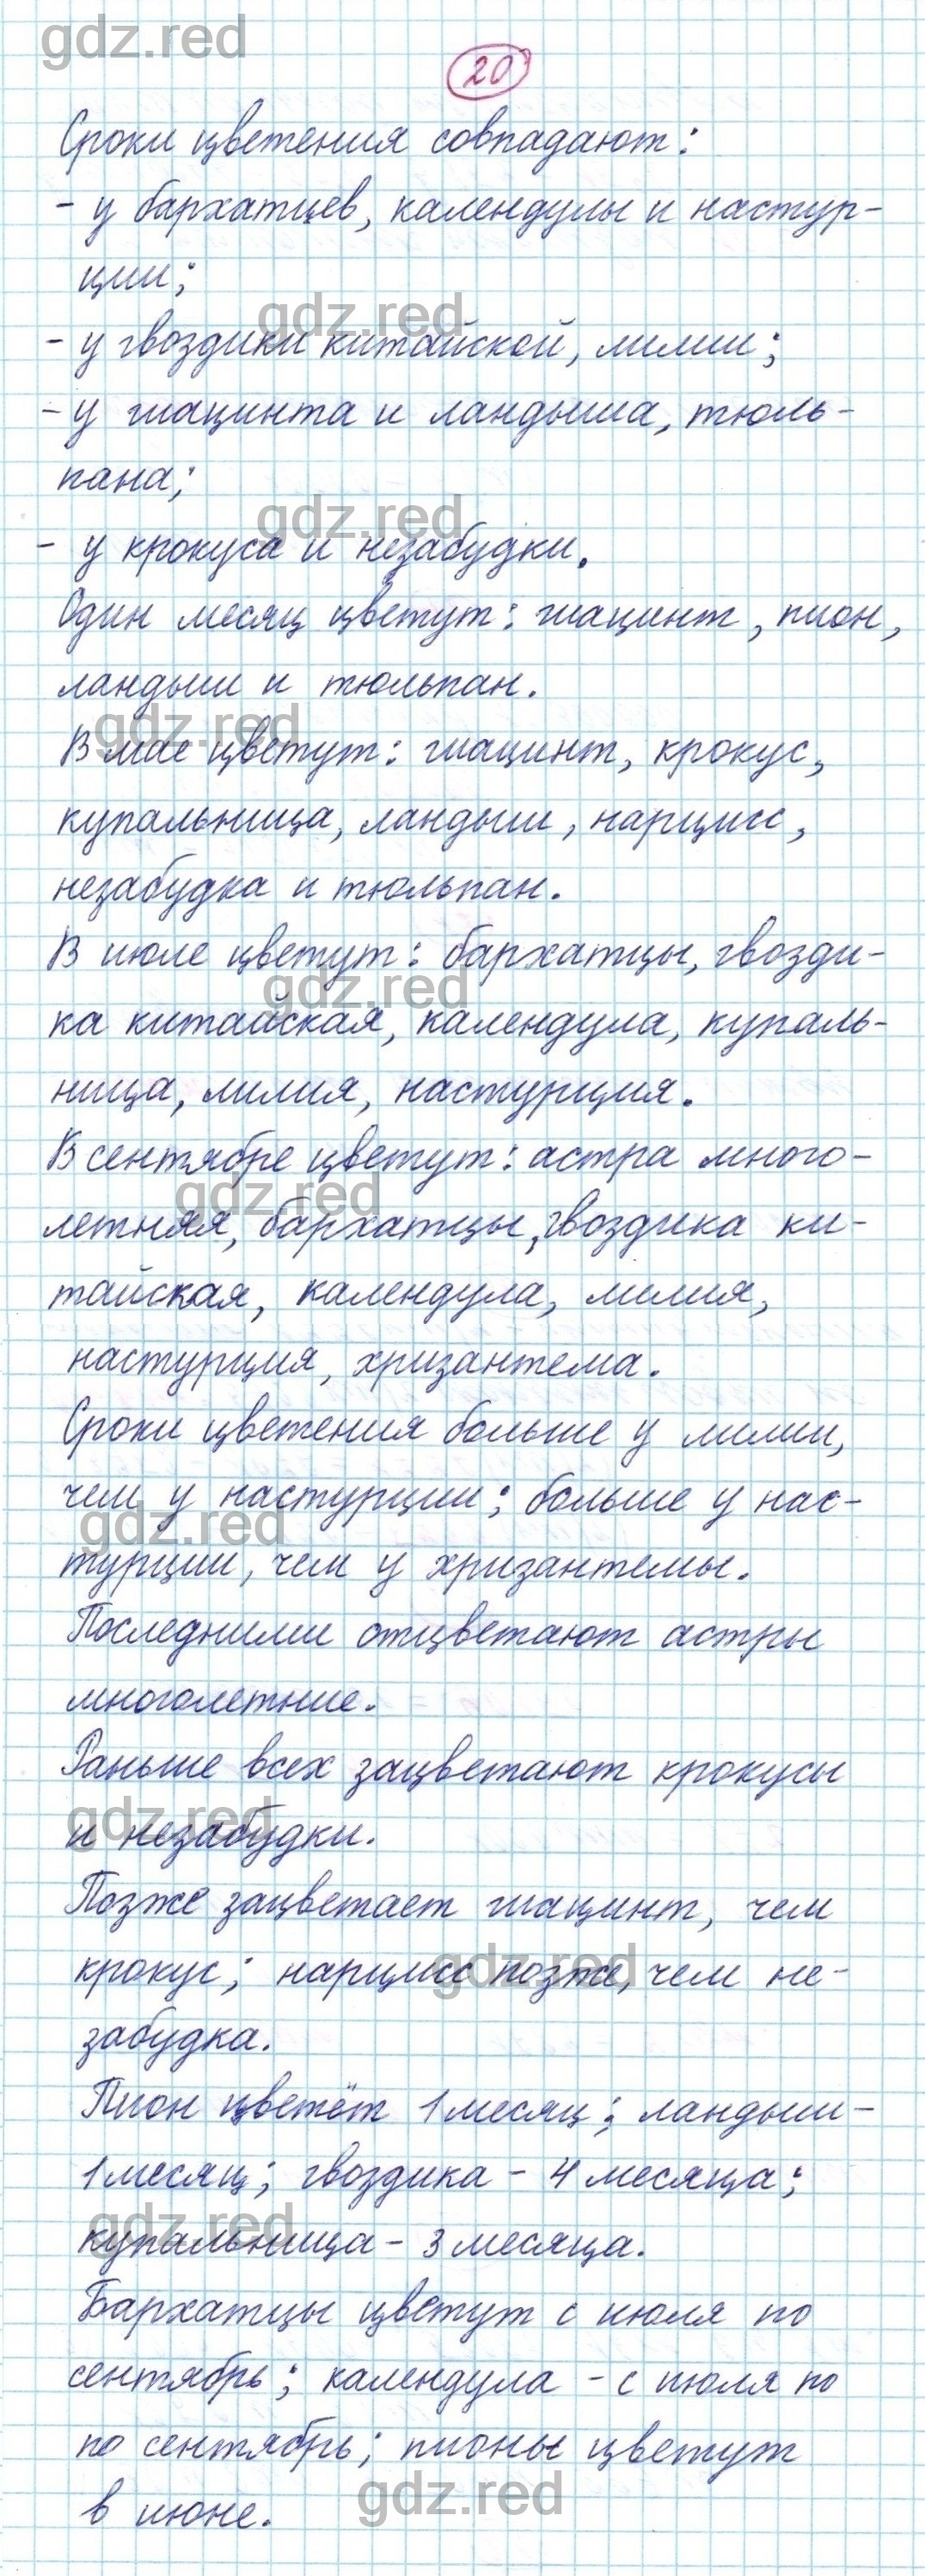 gdz.red
20
Сроки цветения совпадают:
- у бархатцев, календулы и настур-
ции;
gdz.red
- у гвоздики китайской, лилии;
- у гиацинта и ландыша, тюль-
пана;
gdz.red
- у крокуса и незабудки.
Один месяц цветут: гиацинт, пион,
ландыш и тюльпан.
gdz.red
В мае цветут: гиацинт, крокус,
купальница, ландыш, нарцисс,
незабудка и тюльпан.
В июле цветут: бархатцы, гвозди-
gdz.red
ка китайская, календула, купаль-
ница, лилия, настурция.
В сентябре цветут: астра много-
gdz.red
летняя, бархатцы, гвоздика ки-
тайская, календула, лилия,
настурция, хризантема.
Сроки цветения больше у лилии,
чем у настурции; больше у нас-
gdz.red
турции, чем у хризантемы.
Последними отцветают астры
многолетние.
Раньше всех зацветают крокусы
gdz.red
и незабудки.
Позже зацветает гиацинт, чем
крокус; нарцисс позже, чем не-
gdz.red
забудка.
Пион цветёт 1 месяц; ландыш-
1 месяц; гвоздика - 4 месяца;
gdz.red
купальница - 3 месяца.
Бархатцы цветут с июля по
сентябрь; календула - с июля по
по сентябрь; пионы цветут
gdz.red
в июне.